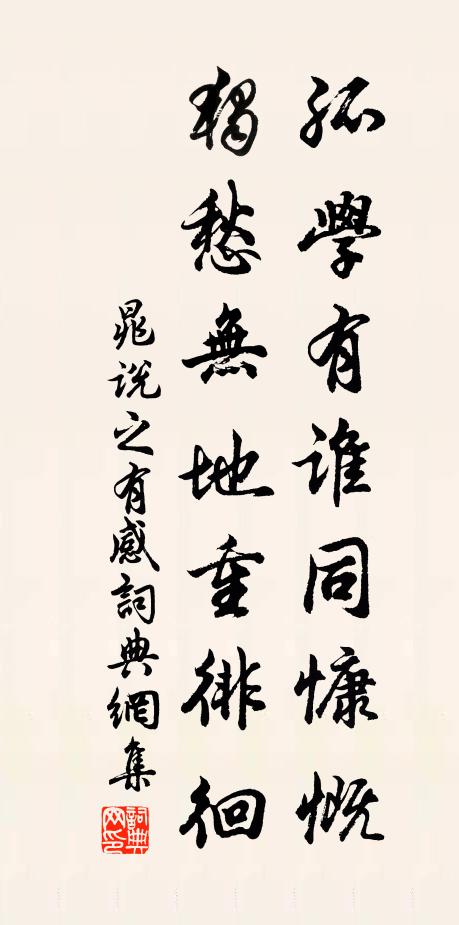 孤學有誰同慷慨
獨愁無地重徘徊
晁説之有感詞典網集
詞典網印